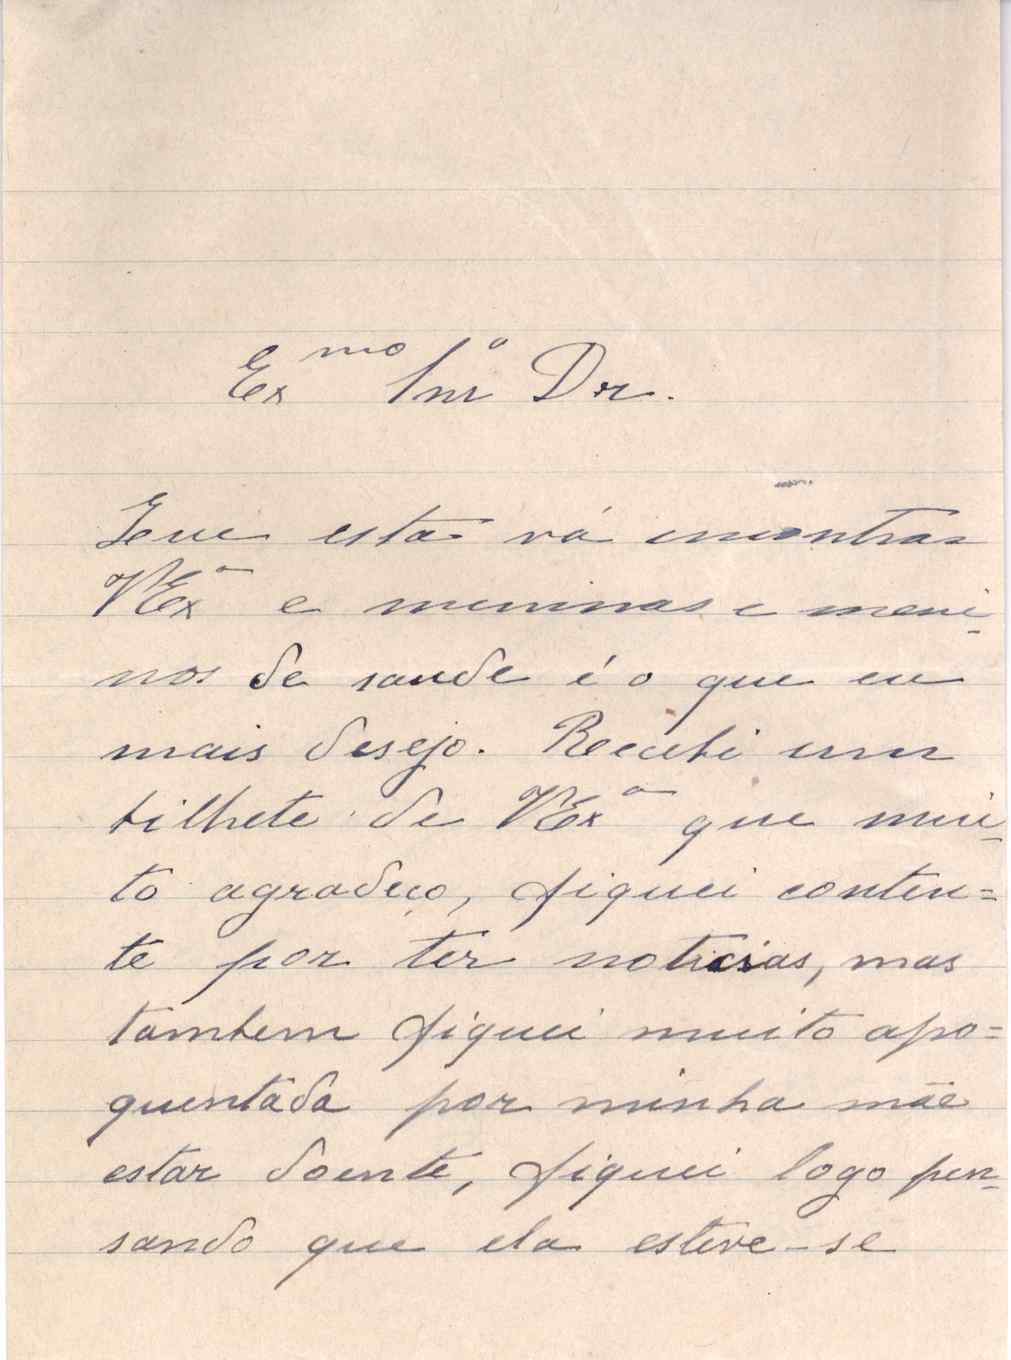 Exmo Snr Dr.
Que esta vá encontrar
VExa e meninas e meni-
nos de saude é o que eu
mais desejo. Recebi um
bilhete de VExa que mui-
to agradeço, fiquei conten=
te por ter noticias, mas
tambem fiquei muito apo=
quentada por minha mãe
estar doente, fiquei logo pen-
sando que ela esteve-se